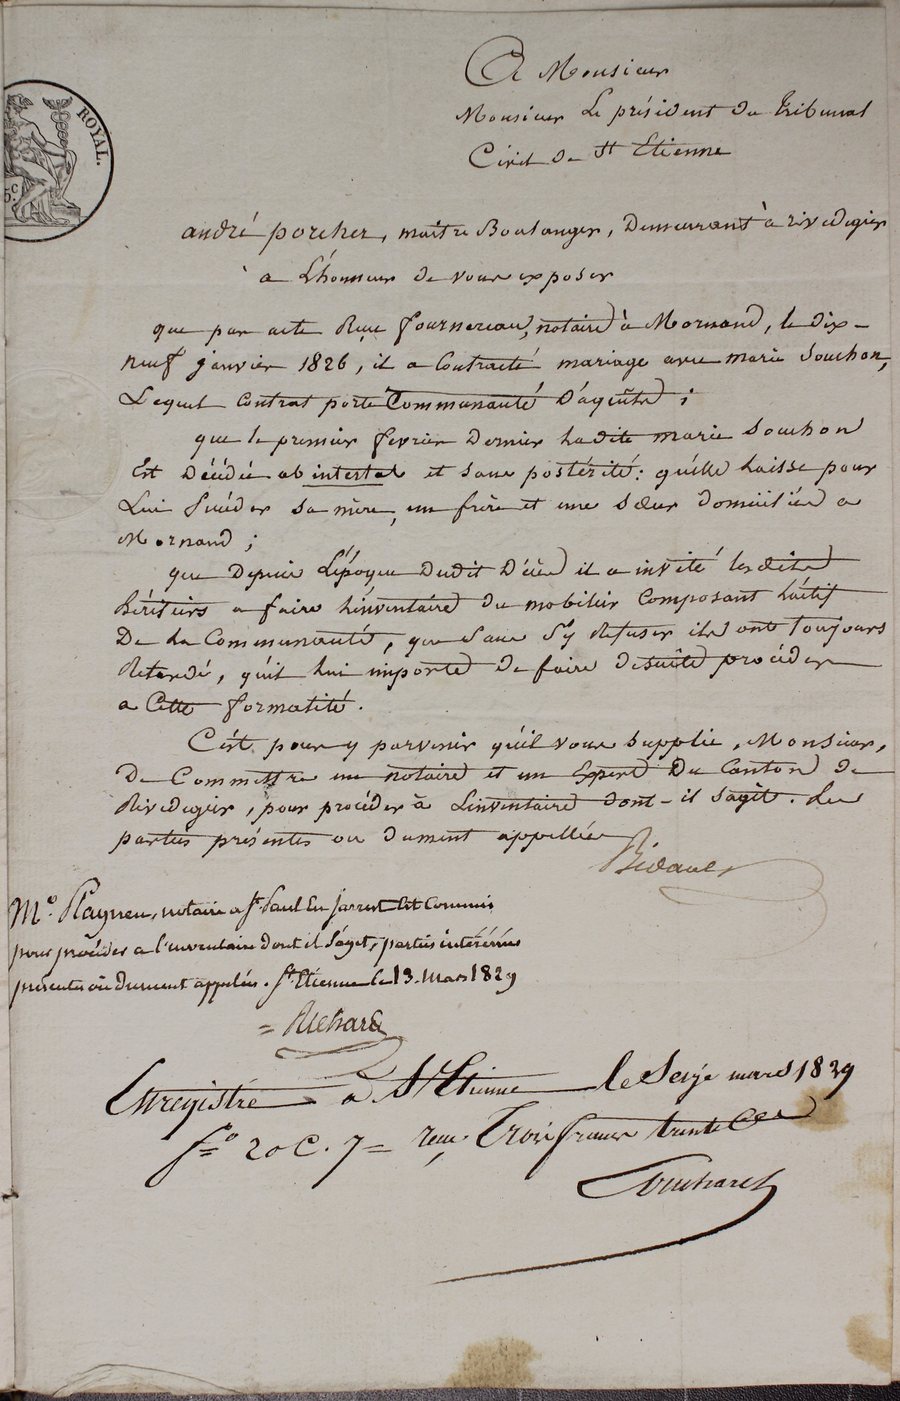 ROYAL.
5.c
A Monsieur
Monsieur Le président du Tribunal
Civil de St Etienne
andré porcher, maitre Boulanger, Demeurant à rivedegier
a L'honneur de vous exposer
que par acte Reçu fournereau, notaire à Mornand, le dix-
neuf janvier 1826, il a Contracté mariage avec marie Souchon,
Lequel Contrat porte Communauté D'aquêts ;
que le premier fevrier Dernier Ladite marie Souchon
Est Décédée ab intestat et sans postérité : qu'elle Laisse pour
Lui Succéder sa mère, un frère et une sœur domiciliés a
Mornand ;
que Depuis L'époque Dudit Décès il a invité lesdits
héritiers a faire L'inventaire du mobilier Composant L'actif
De La Communauté, que Sans S'y Refuser ils ont Toujours
Retardé, qu'il Lui importe de faire desuite procéder
a Cette formalité.
C'est pour y parvenir qu'il vous supplie, Monsieur,
De Commettre un notaire et un Expert Du Canton de
Rivedegier, pour procéder à Linventaire dont-il s'agit. Les
parties présentes ou dument appellées
Bidault
Me. Plagneu, notaire a St Paul En Jarrest Est Commis
pour procéder a l'inventaire dont il S'agit, parties intéréssées
présentes ou Dument appelées. St Etienne le 13. Mars 1829
= Richard
Enregistré a St Etienne le Seize mars 1829
fo 20 C. 7 = reçu Trois francs trente Ces
Souchard